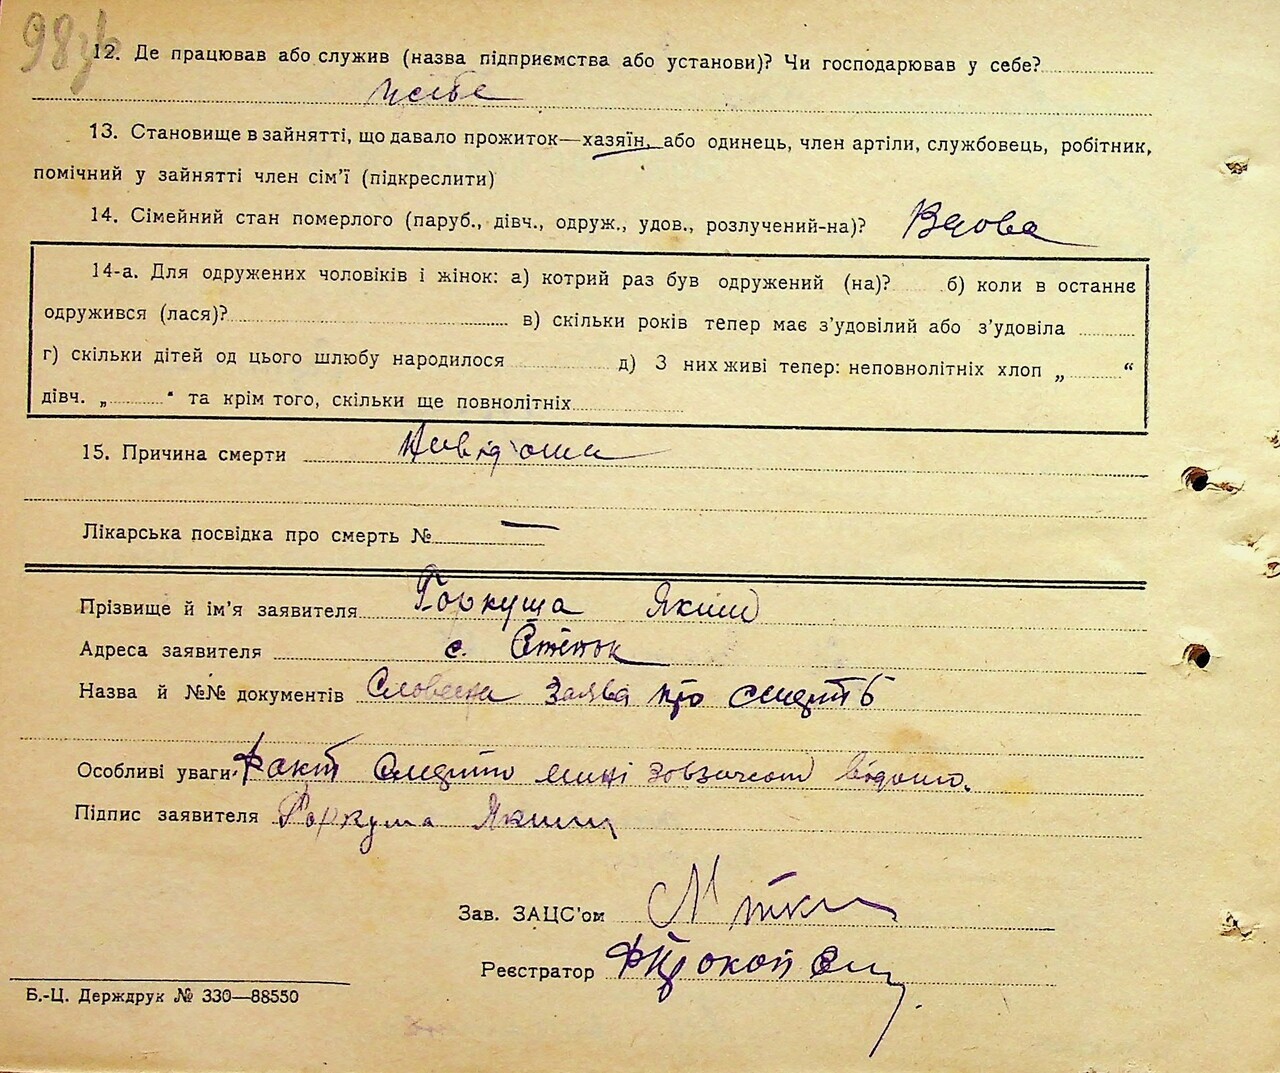 98зв
12. Де працював або служив (назва підприємства або установи)? Чи господарював у себе?
У себе
13. Становище в зайнятті, що давало прожиток—хазяїн, або одинець, член артіли, службовець, робітник,
помічний у зайнятті член сім'ї (підкреслити)
14. Сімейний стан померлого (паруб., дівч., одруж., удов., розлучений-на)? Вдова
14-а. Для одружених чоловіків і жінок: а) котрий раз був одружений (на)? б) коли в останнє
одружився (лася)? в) скільки років тепер має з'удовілий або з'удовіла
г) скільки дітей од цього шлюбу народилося д) З них живі тепер: неповнолітніх хлоп „ “
дівч. „ “ та крім того, скільки ще повнолітніх
15. Причина смерти Невідома
Лікарська посвідка про смерть № —
Прізвище й ім'я заявителя Горкуша Яким
Адреса заявителя с. Степок
Назва й №№ документів Словесна заява про смерть
Особливі уваги Факт смерти мині відомо.
Підпис заявителя Горкуша Яким
Зав. ЗАЦС'ом
Реєстратор
Б.-Ц. Держдрук № 330—88550